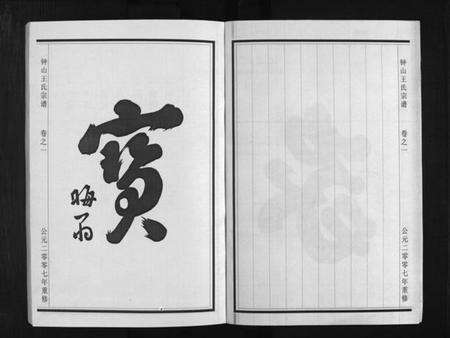 钟山王氏宗谱
卷之一
公元二零零七年重修
寶
晦翁
钟山王氏宗谱
卷之一
公元二零零七年重修